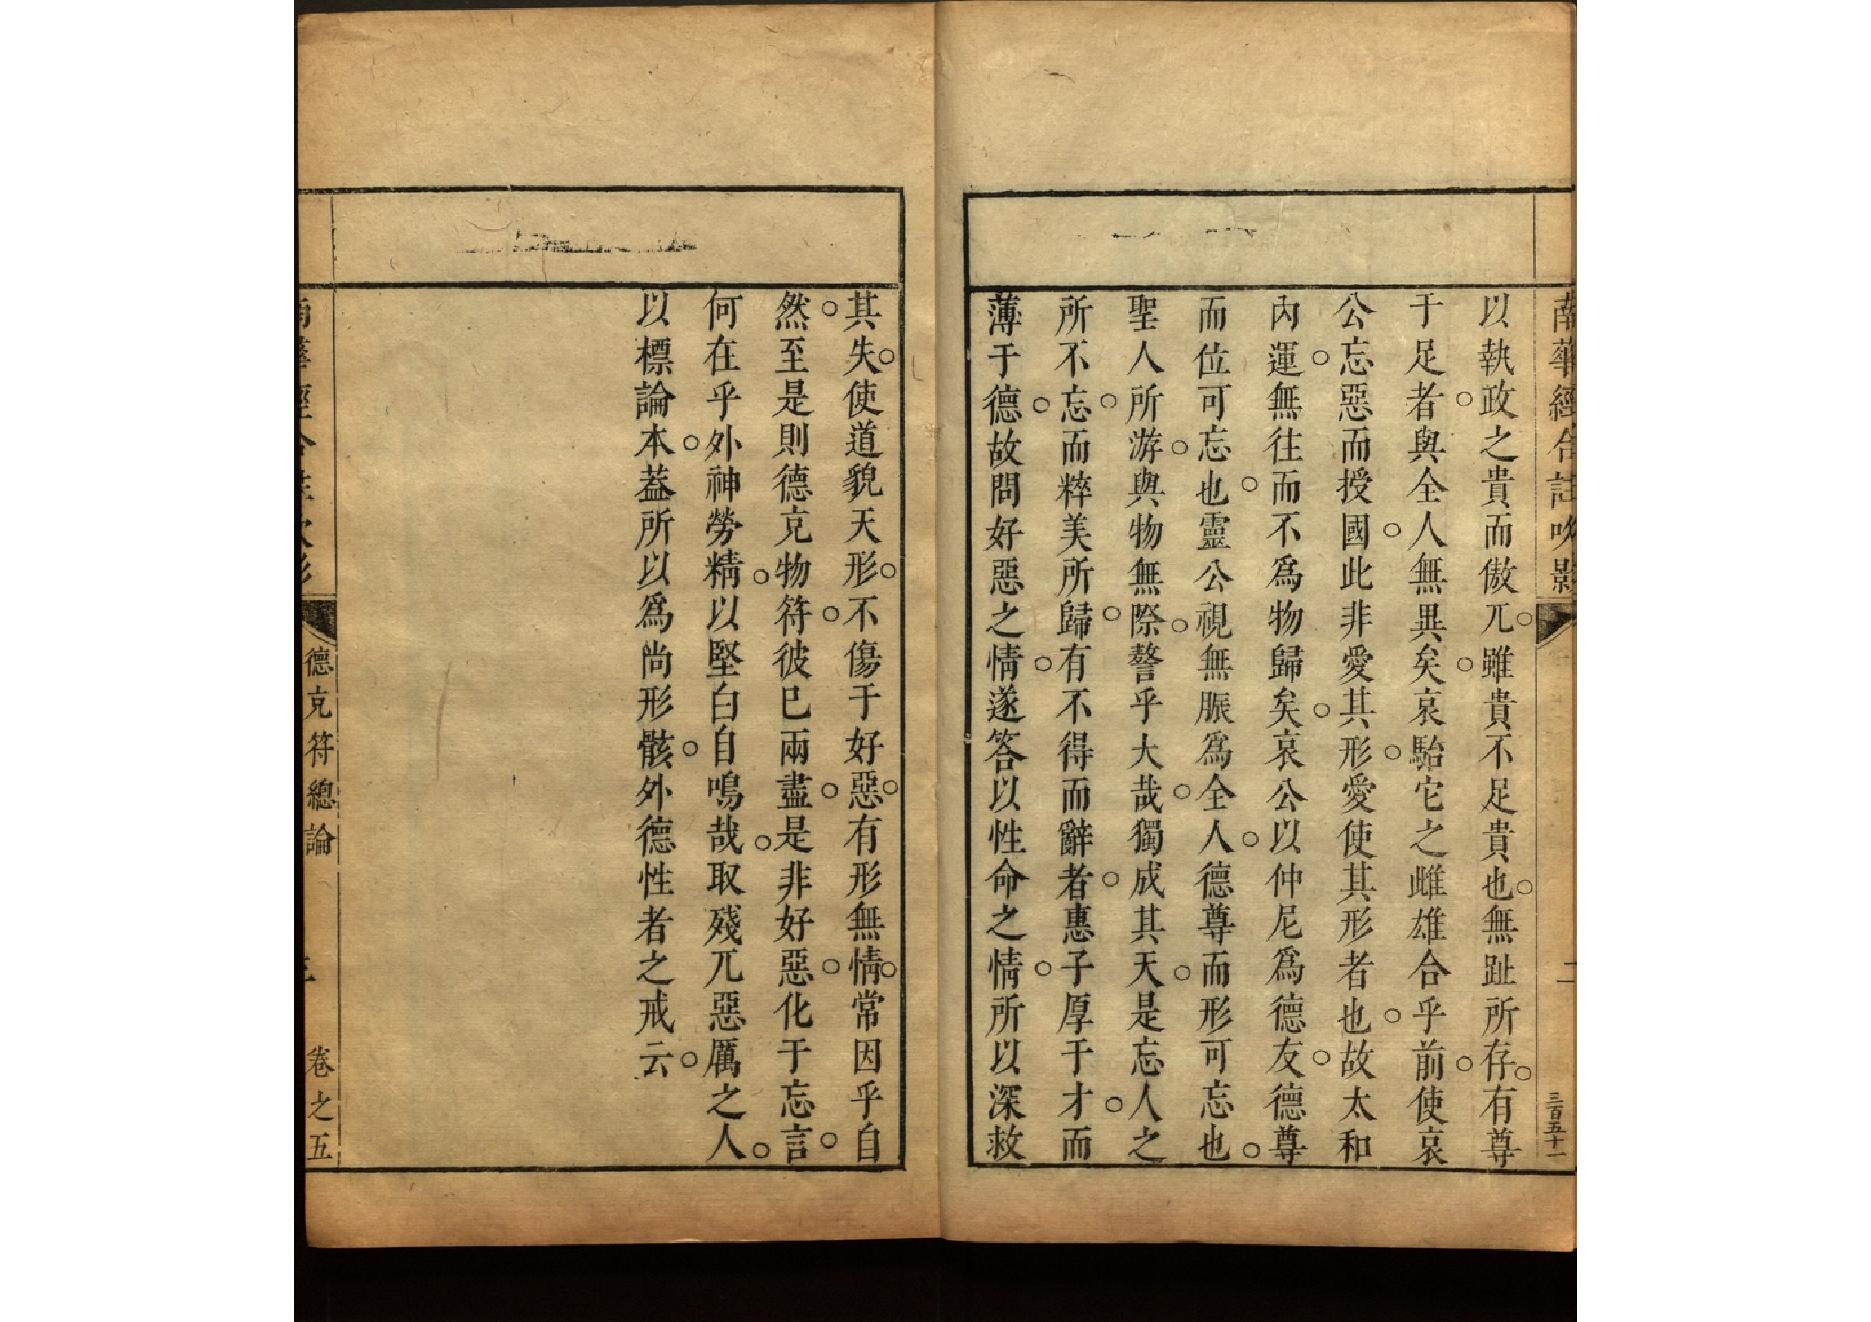 南華經合註吹影
三百五十一
以執政之貴而傲兀雖貴不足貴也無趾所存有尊
于足者與全人無異矣哀駘它之雌雄合乎前使哀
公忘惡而授國此非愛其形愛使其形者也故太和
內運無往而不爲物歸矣哀公以仲尼爲德友德尊
而位可忘也靈公視無脤爲全人德尊而形可忘也
聖人所游與物無際謷乎大哉獨成其天是忘人之
所不忘而粹美所歸有不得而辭者惠子厚于才而
薄于德故問好惡之情遂答以性命之情所以深救
其失使道貌天形不傷于好惡有形無情常因乎自
然至是則德充物符彼已兩盡是非好惡化于忘言
何在乎外神勞精以堅白自鳴哉取殘兀惡厲之人
以標論本葢所以爲尚形骸外德性者之戒云
南華經合註吹影
德充符總論
三
卷之五